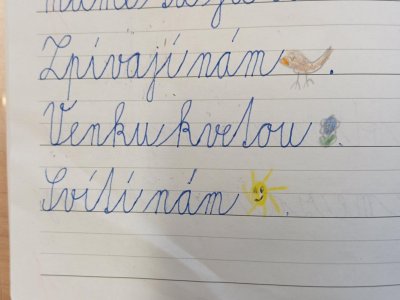 Zpívají nám .
Venku kvetou .
Svítí nám .